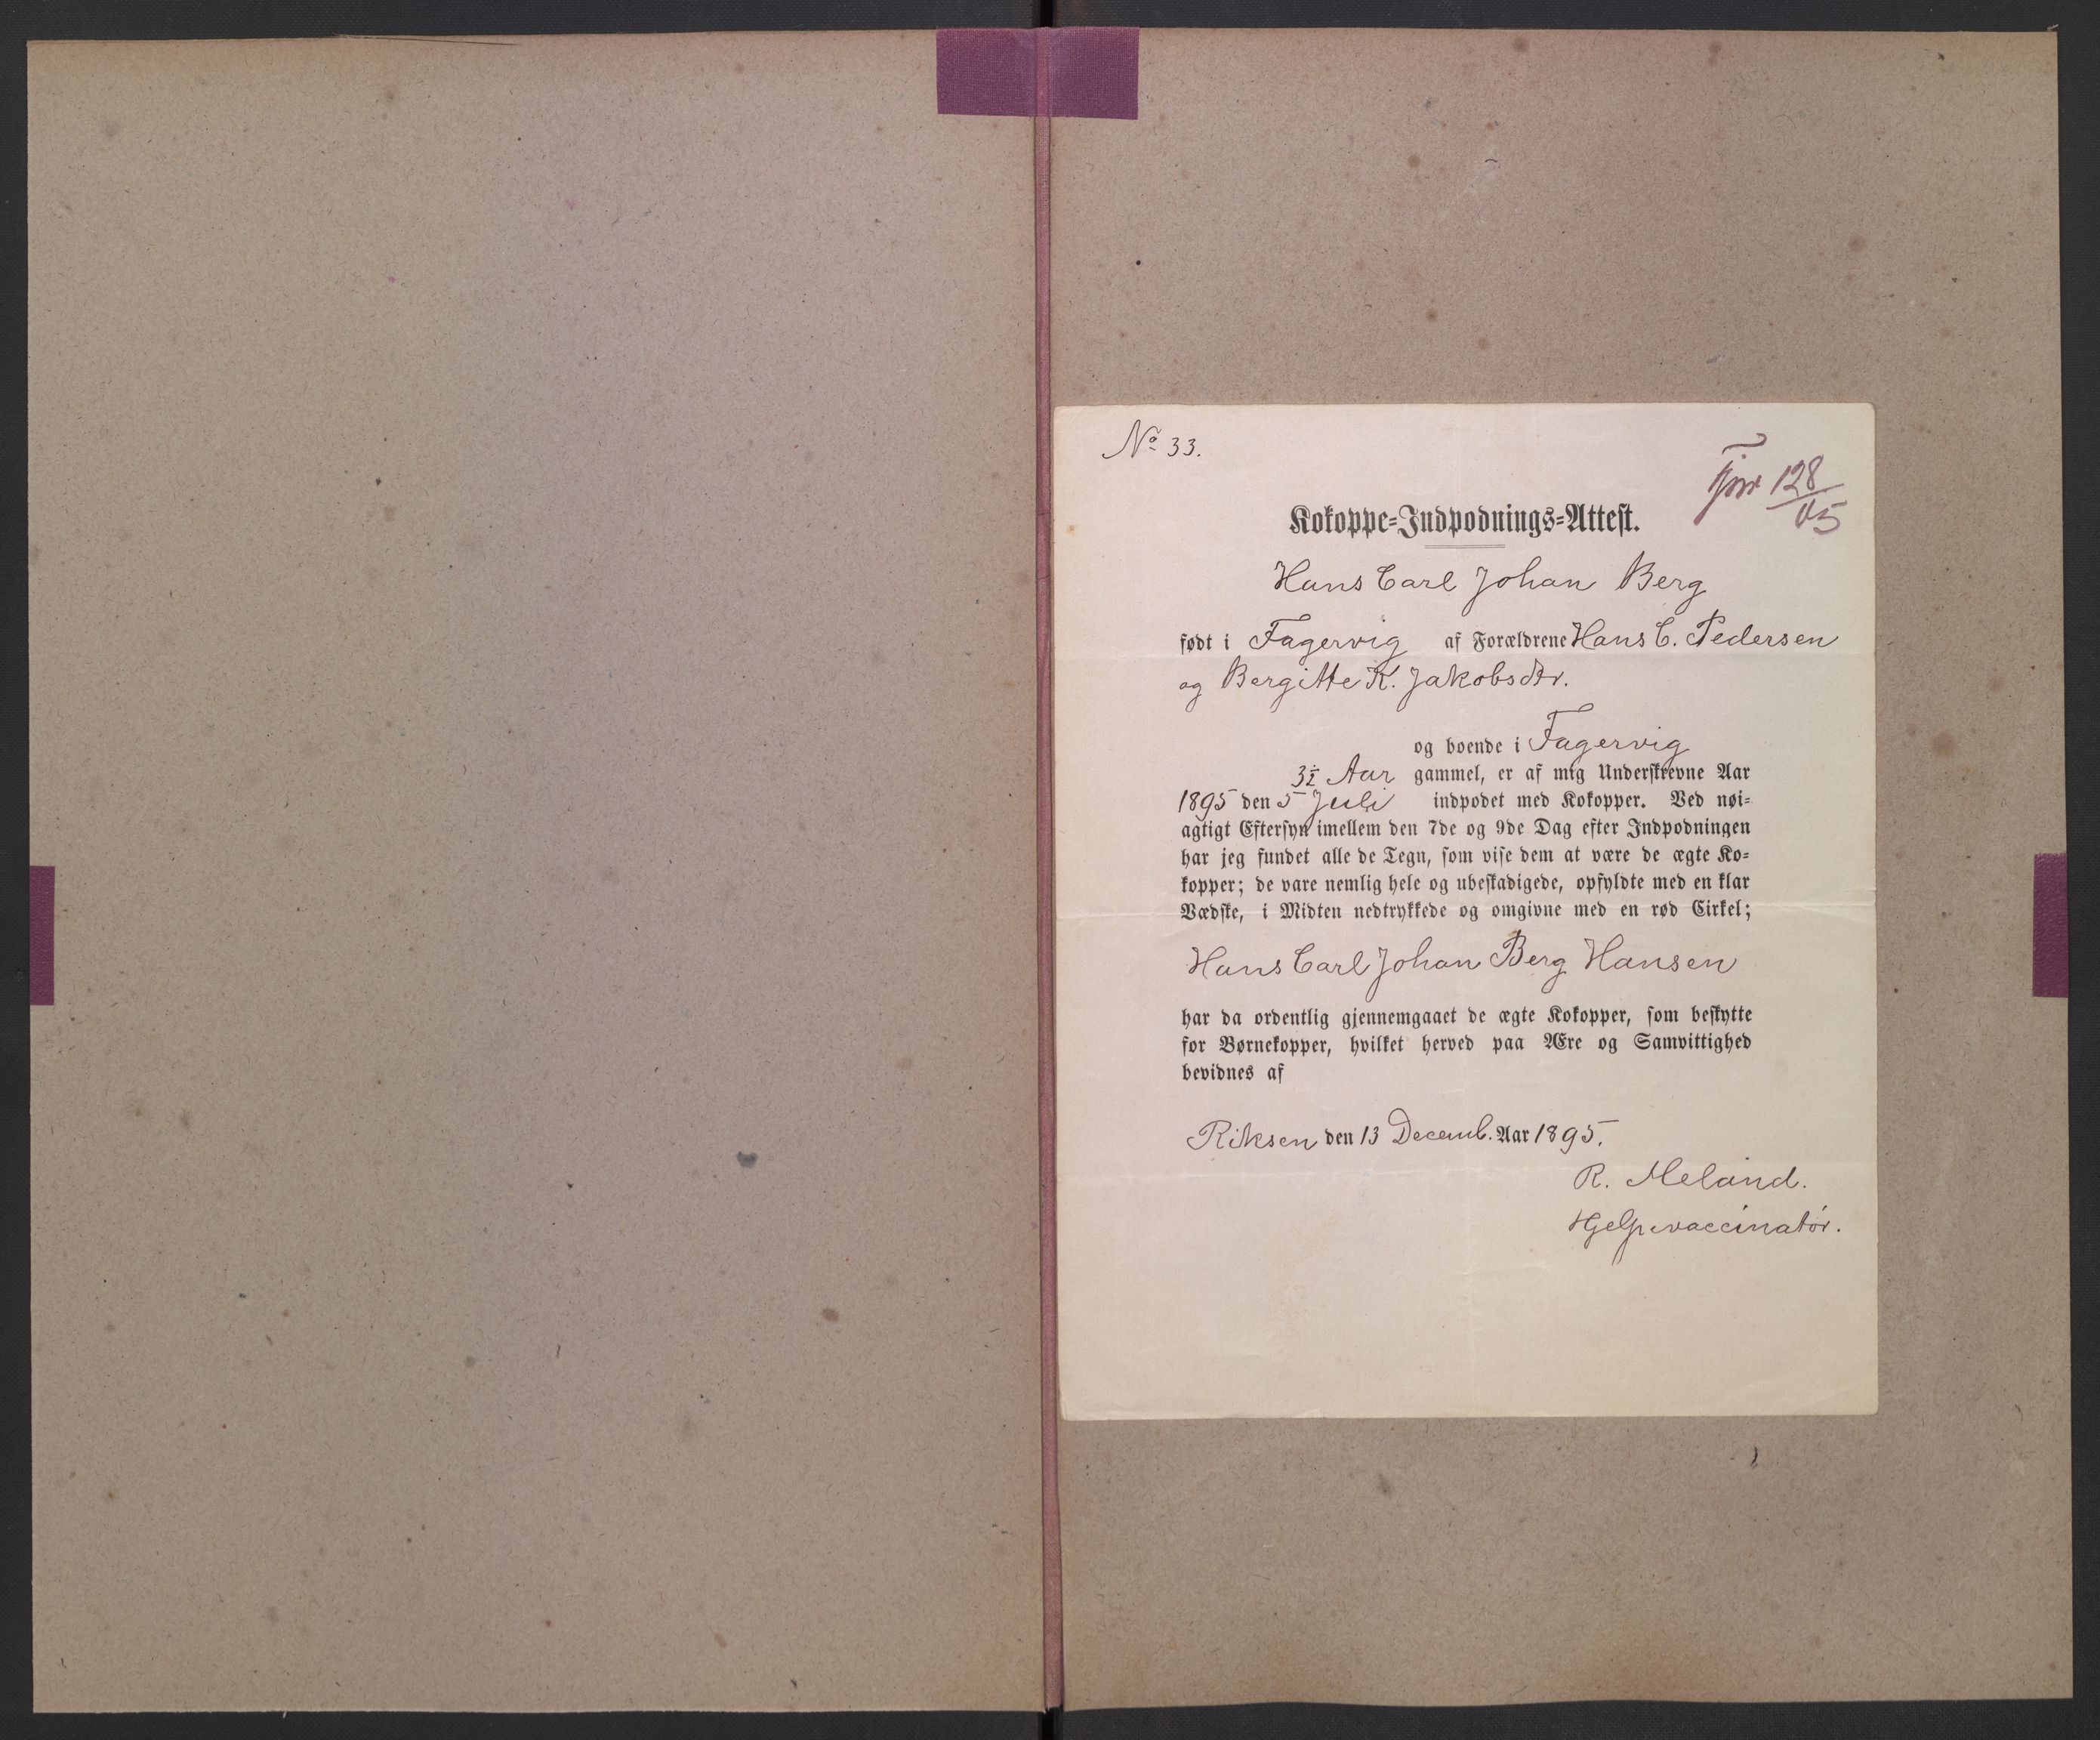 No 33.
128/05
Kokoppe-Indpodnings-Attest.
Hans Carl Johan Berg
født i Fagervig af Forældrene Hans C. Pedersen
og Bergitte K. Jakobsdtr.
og boende i Fagervig
3½ Aar gammel, er af mig Underskrevne Aar
1895 den 5 Juli indpodet med Kokopper. Ved nøi-
agtigt Eftersyn imellem den 7de og 9de Dag efter Indpodningen
har jeg fundet alle de Tegn, som vise dem at være de ægte Ko-
kopper; de vare nemlig hele og ubeskadigede, opfyldte med en klar
Vædske, i Midten nedtrykkede og omgivne med en rød Cirkel;
Hans Carl Johan Berg Hansen
har da ordentlig gjennemgaaet de ægte Kokopper, som beskytte
for Børnekopper, hvilket herved paa Ære og Samvittighed
bevidnes af
Riksen den 13 Decemb. Aar 1895.
R. Meland.
Hjelpevaccinatør.